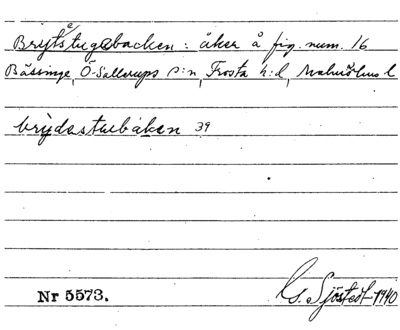 Brytstugebacken: åker å fig. num. 16
Bässinge, Ö-Sallerups s:n, Frosta h:d, Malmöhus l
brydastuebakən 39
Nr 5573.
G. Sjöstedt 1940